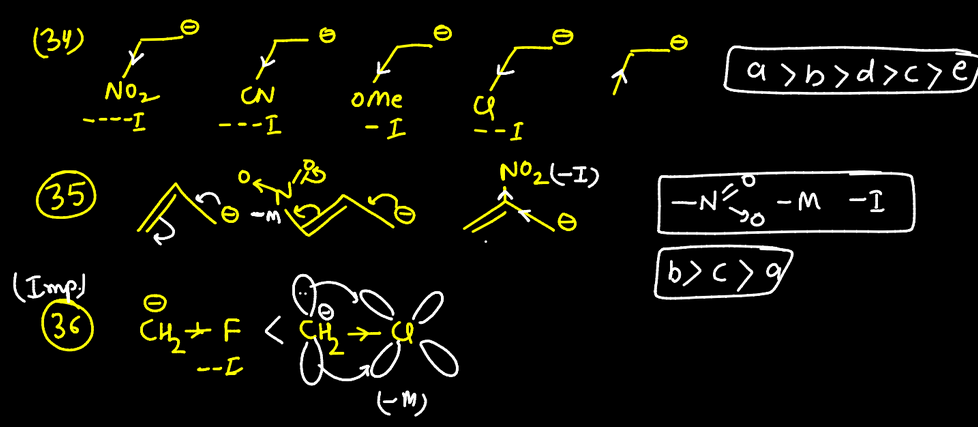 (34) ⊖ ⊖ ⊖ ⊖ ⊖
NO2 CN OMe Cl
----I ---I -I --I
a > b > d > c > e
35 ⊖ O N O -M ⊖ NO2 (-I) ⊖
-N O O -M -I
b > c > a
(Imp.)
36 ⊖ CH2 F < ⊖ CH2 Cl
--I
(-M)